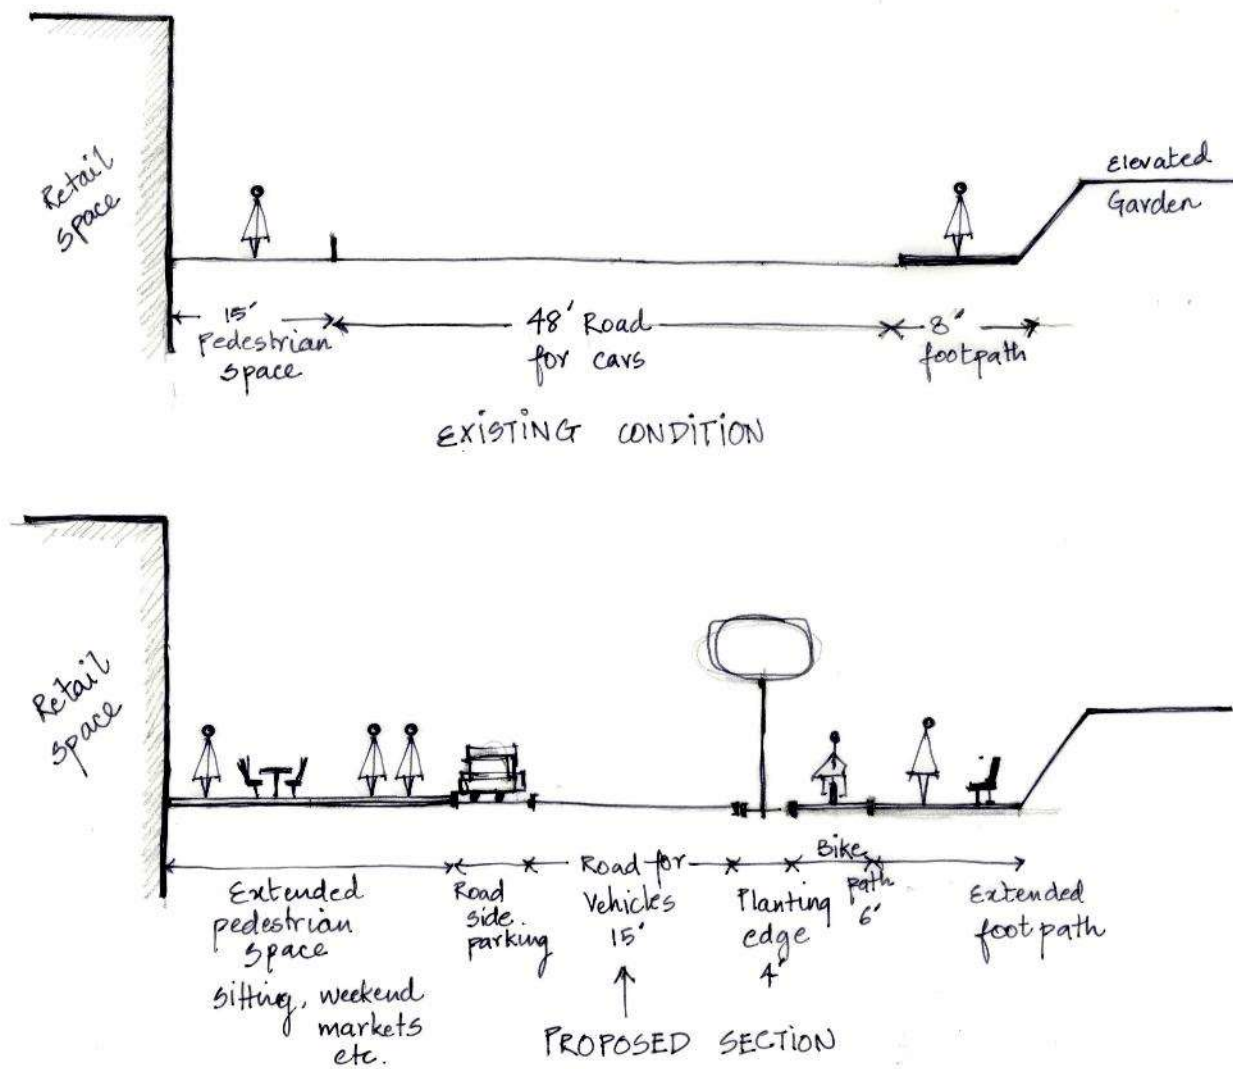 Retail
space
Elevated
Garden
15'
Pedestrian
space
48' Road
for cars
8'
footpath
EXISTING CONDITION
Retail
space
Extended
pedestrian
space
sitting, weekend
markets
etc.
Road
side
parking
Road for
Vehicles
15'
Planting
edge
4'
Bike
path
6'
Extended
footpath
PROPOSED SECTION